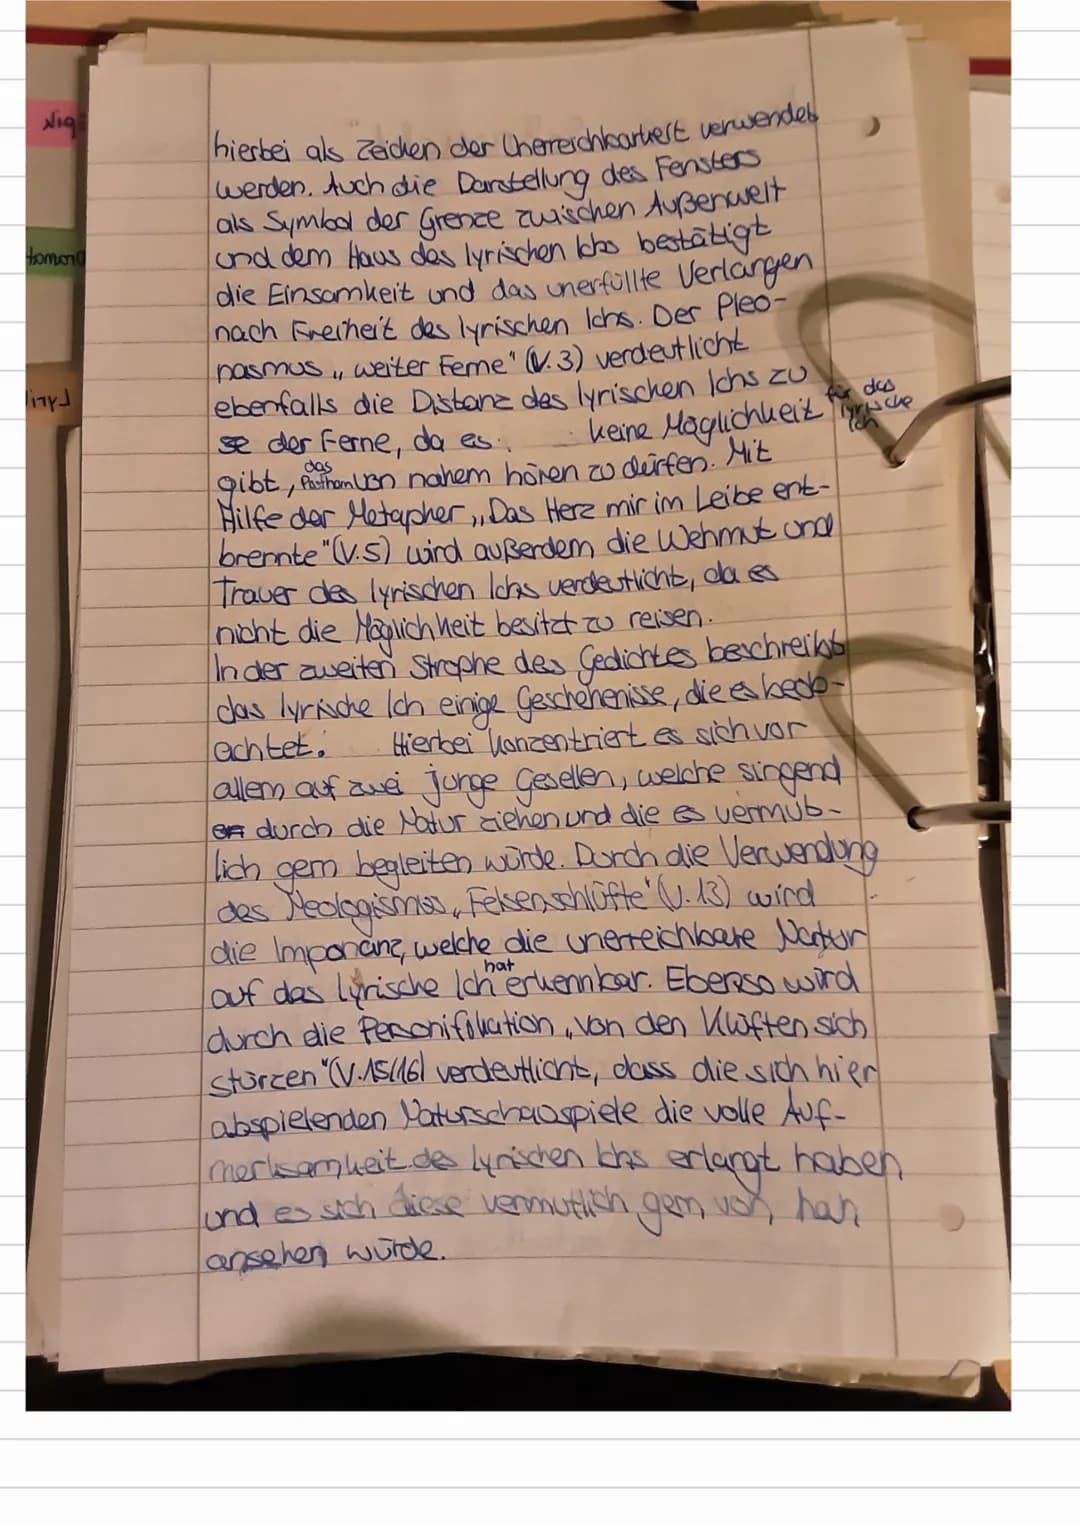 hierbei als Zeichen der Unerreichbarkeit verwendet
werden. Auch die Darstellung des Fensters
als Symbol der Grenze zwischen Außenwelt
und dem Haus des lyrischen Ichs bestätigt
die Einsamkeit und das unerfüllte Verlangen
nach Freiheit des lyrischen Ichs. Der Pleo-
nasmus „weiter Ferne" (V.3) verdeutlicht
ebenfalls die Distanz des lyrischen Ichs zu
der Ferne, da es keine Möglichkeit für das lyrische Ich
gibt, das von nahem hören zu dürfen. Mit
Hilfe der Metapher „Das Herz mir im Leibe ent-
brennte" (V.5) wird außerdem die Wehmut und
Trauer des lyrischen Ichs verdeutlicht, da es
nicht die Möglichkeit besitzt zu reisen.
In der zweiten Strophe des Gedichtes beschreibt
das lyrische Ich einige Geschehenisse, die es beob-
achtet. Hierbei konzentriert es sich vor
allem auf zwei junge Gesellen, welche singend
durch die Natur ziehen und die es vermut-
lich gern begleiten würde. Durch die Verwendung
des Neologismus „Felsenschlüfte" (V.13) wird
die Imponanz, welche die unerreichbare Natur
auf das lyrische Ich hat erkennbar. Ebenso wird
durch die Personifikation „von den Klüften sich
stürzen" (V.15/16) verdeutlicht, dass die sich hier
abspielenden Naturschauspiele die volle Auf-
merksamkeit des lyrischen Ichs erlangt haben
und es sich diese vermutlich gern von nah
ansehen würde.